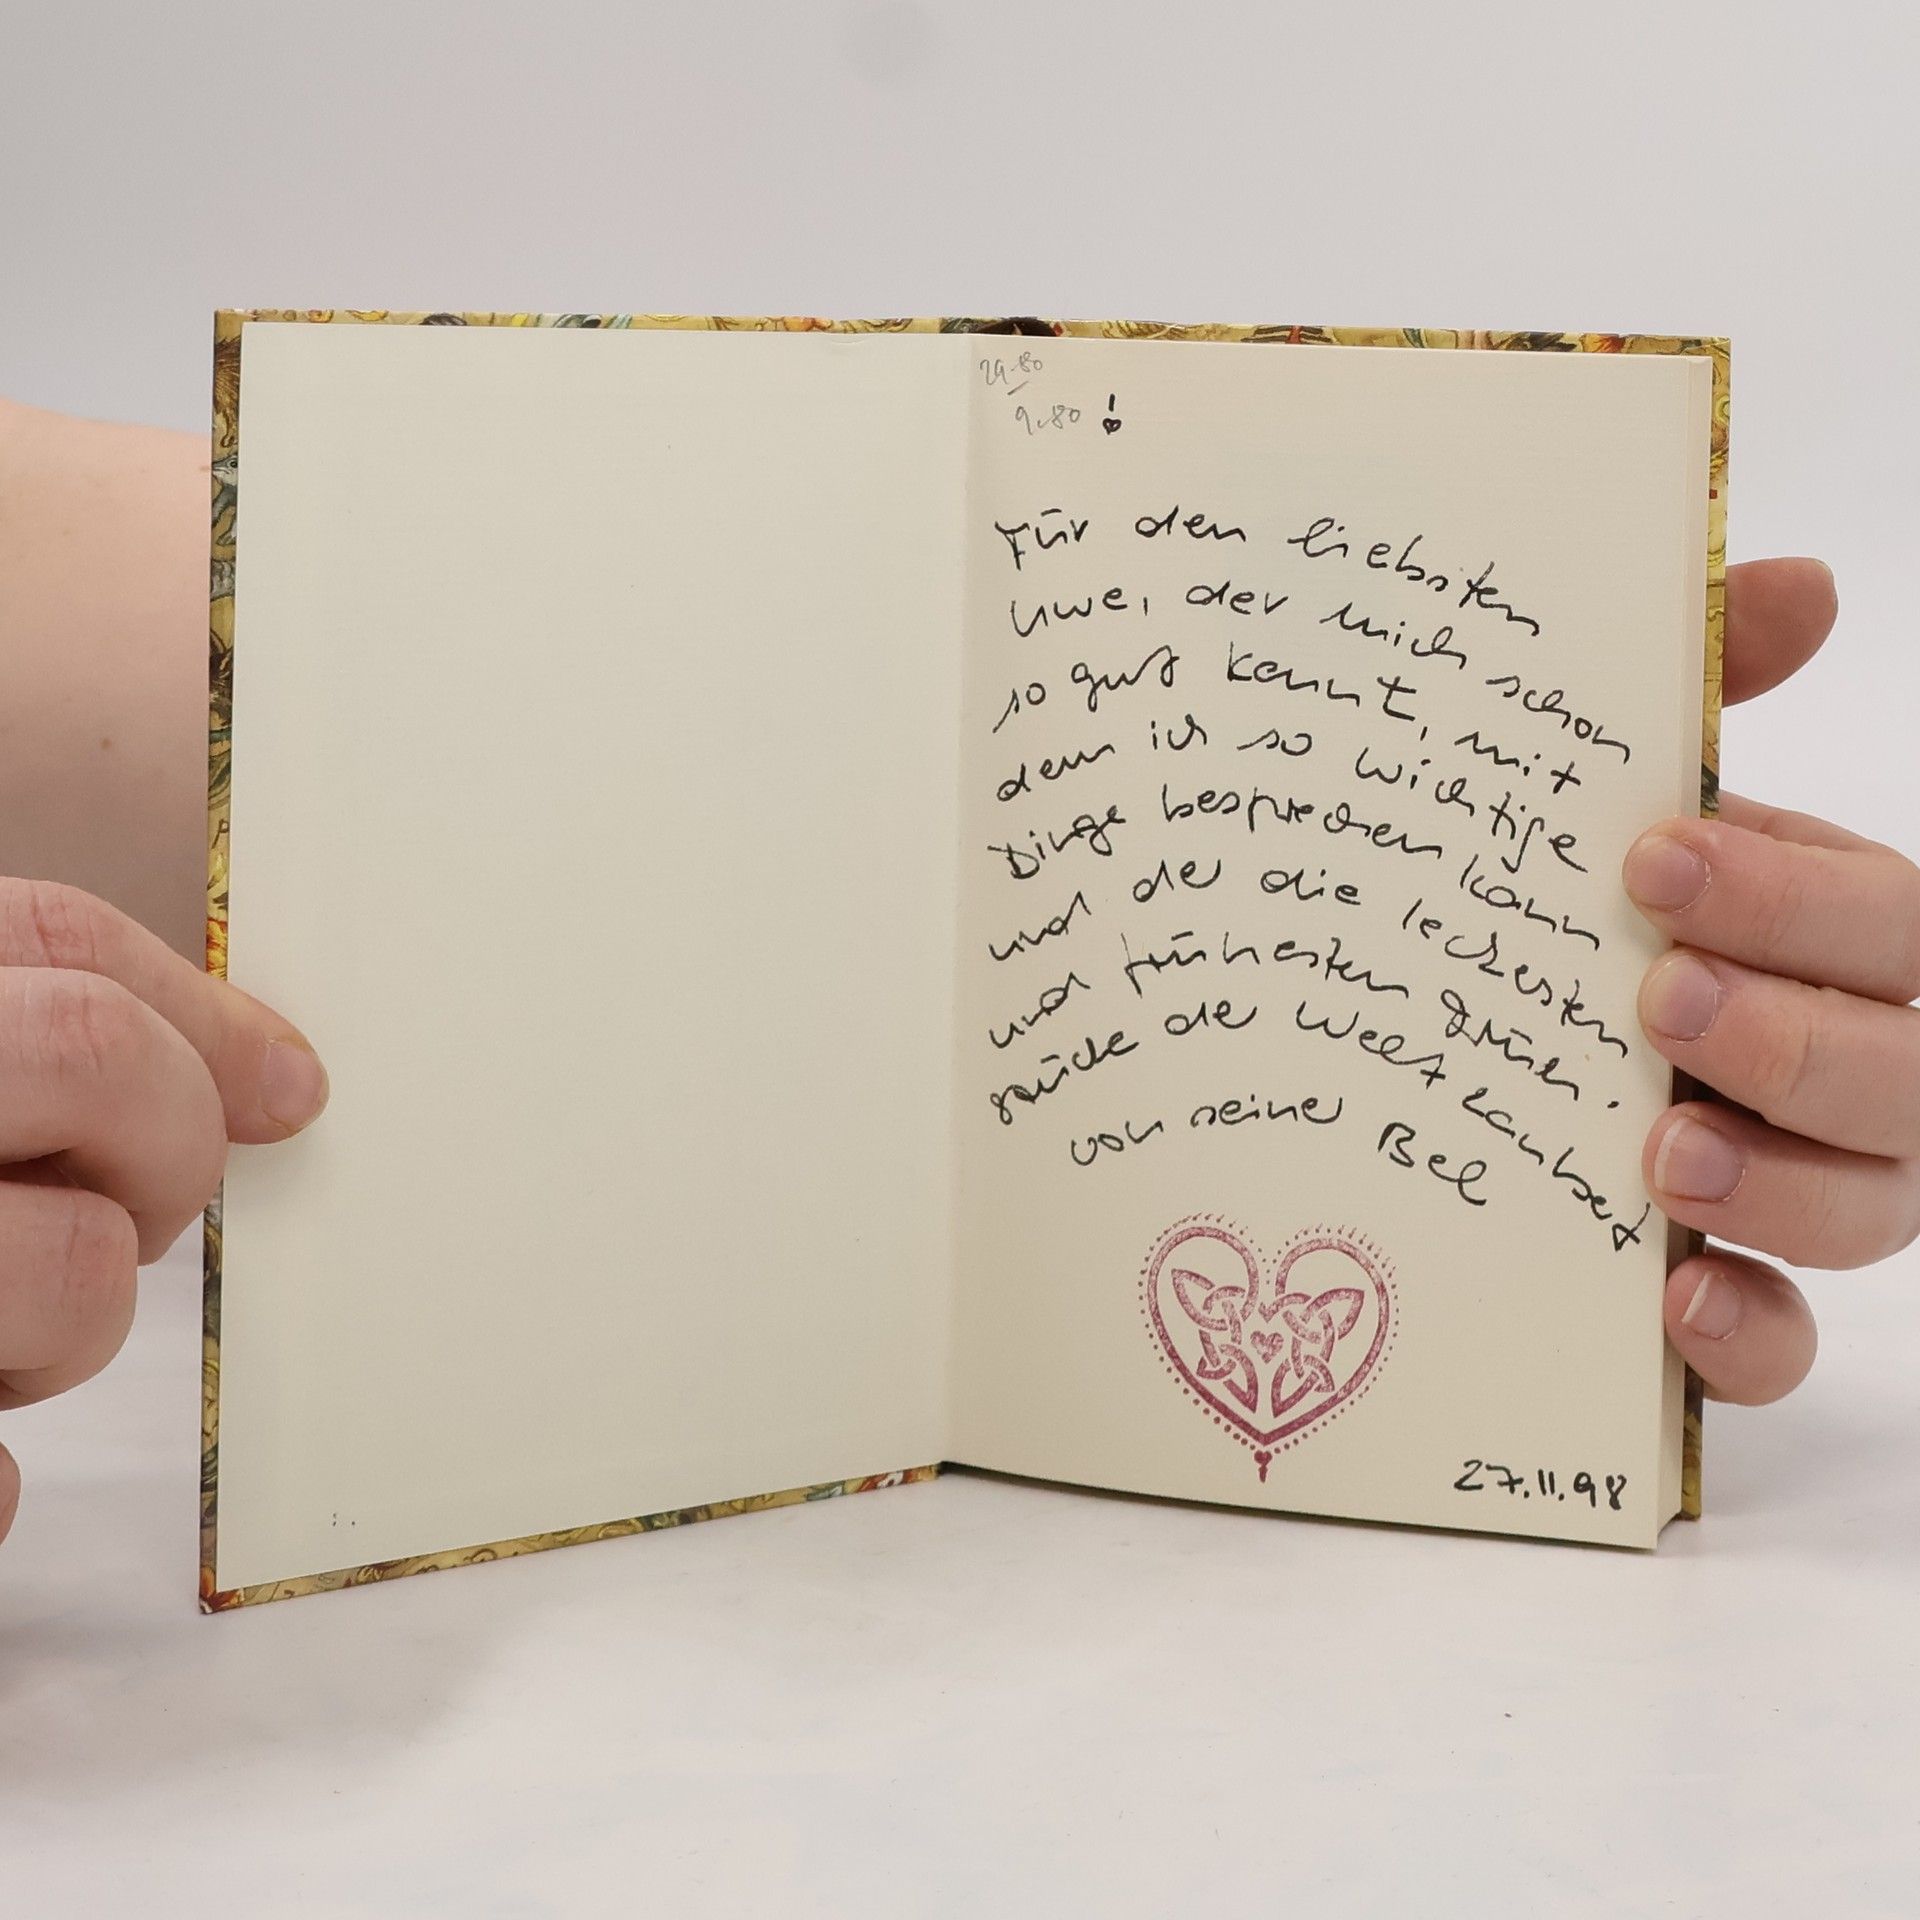 29.80
9.80 !
Für den liebsten
Uwe, der mich schon
so gut kennt, mit
dem ich so wichtige
Dinge besprechen kann
und der die leckersten
und frühesten Früh-
stücke der Welt zaubert
von seiner Bel
27.11.98